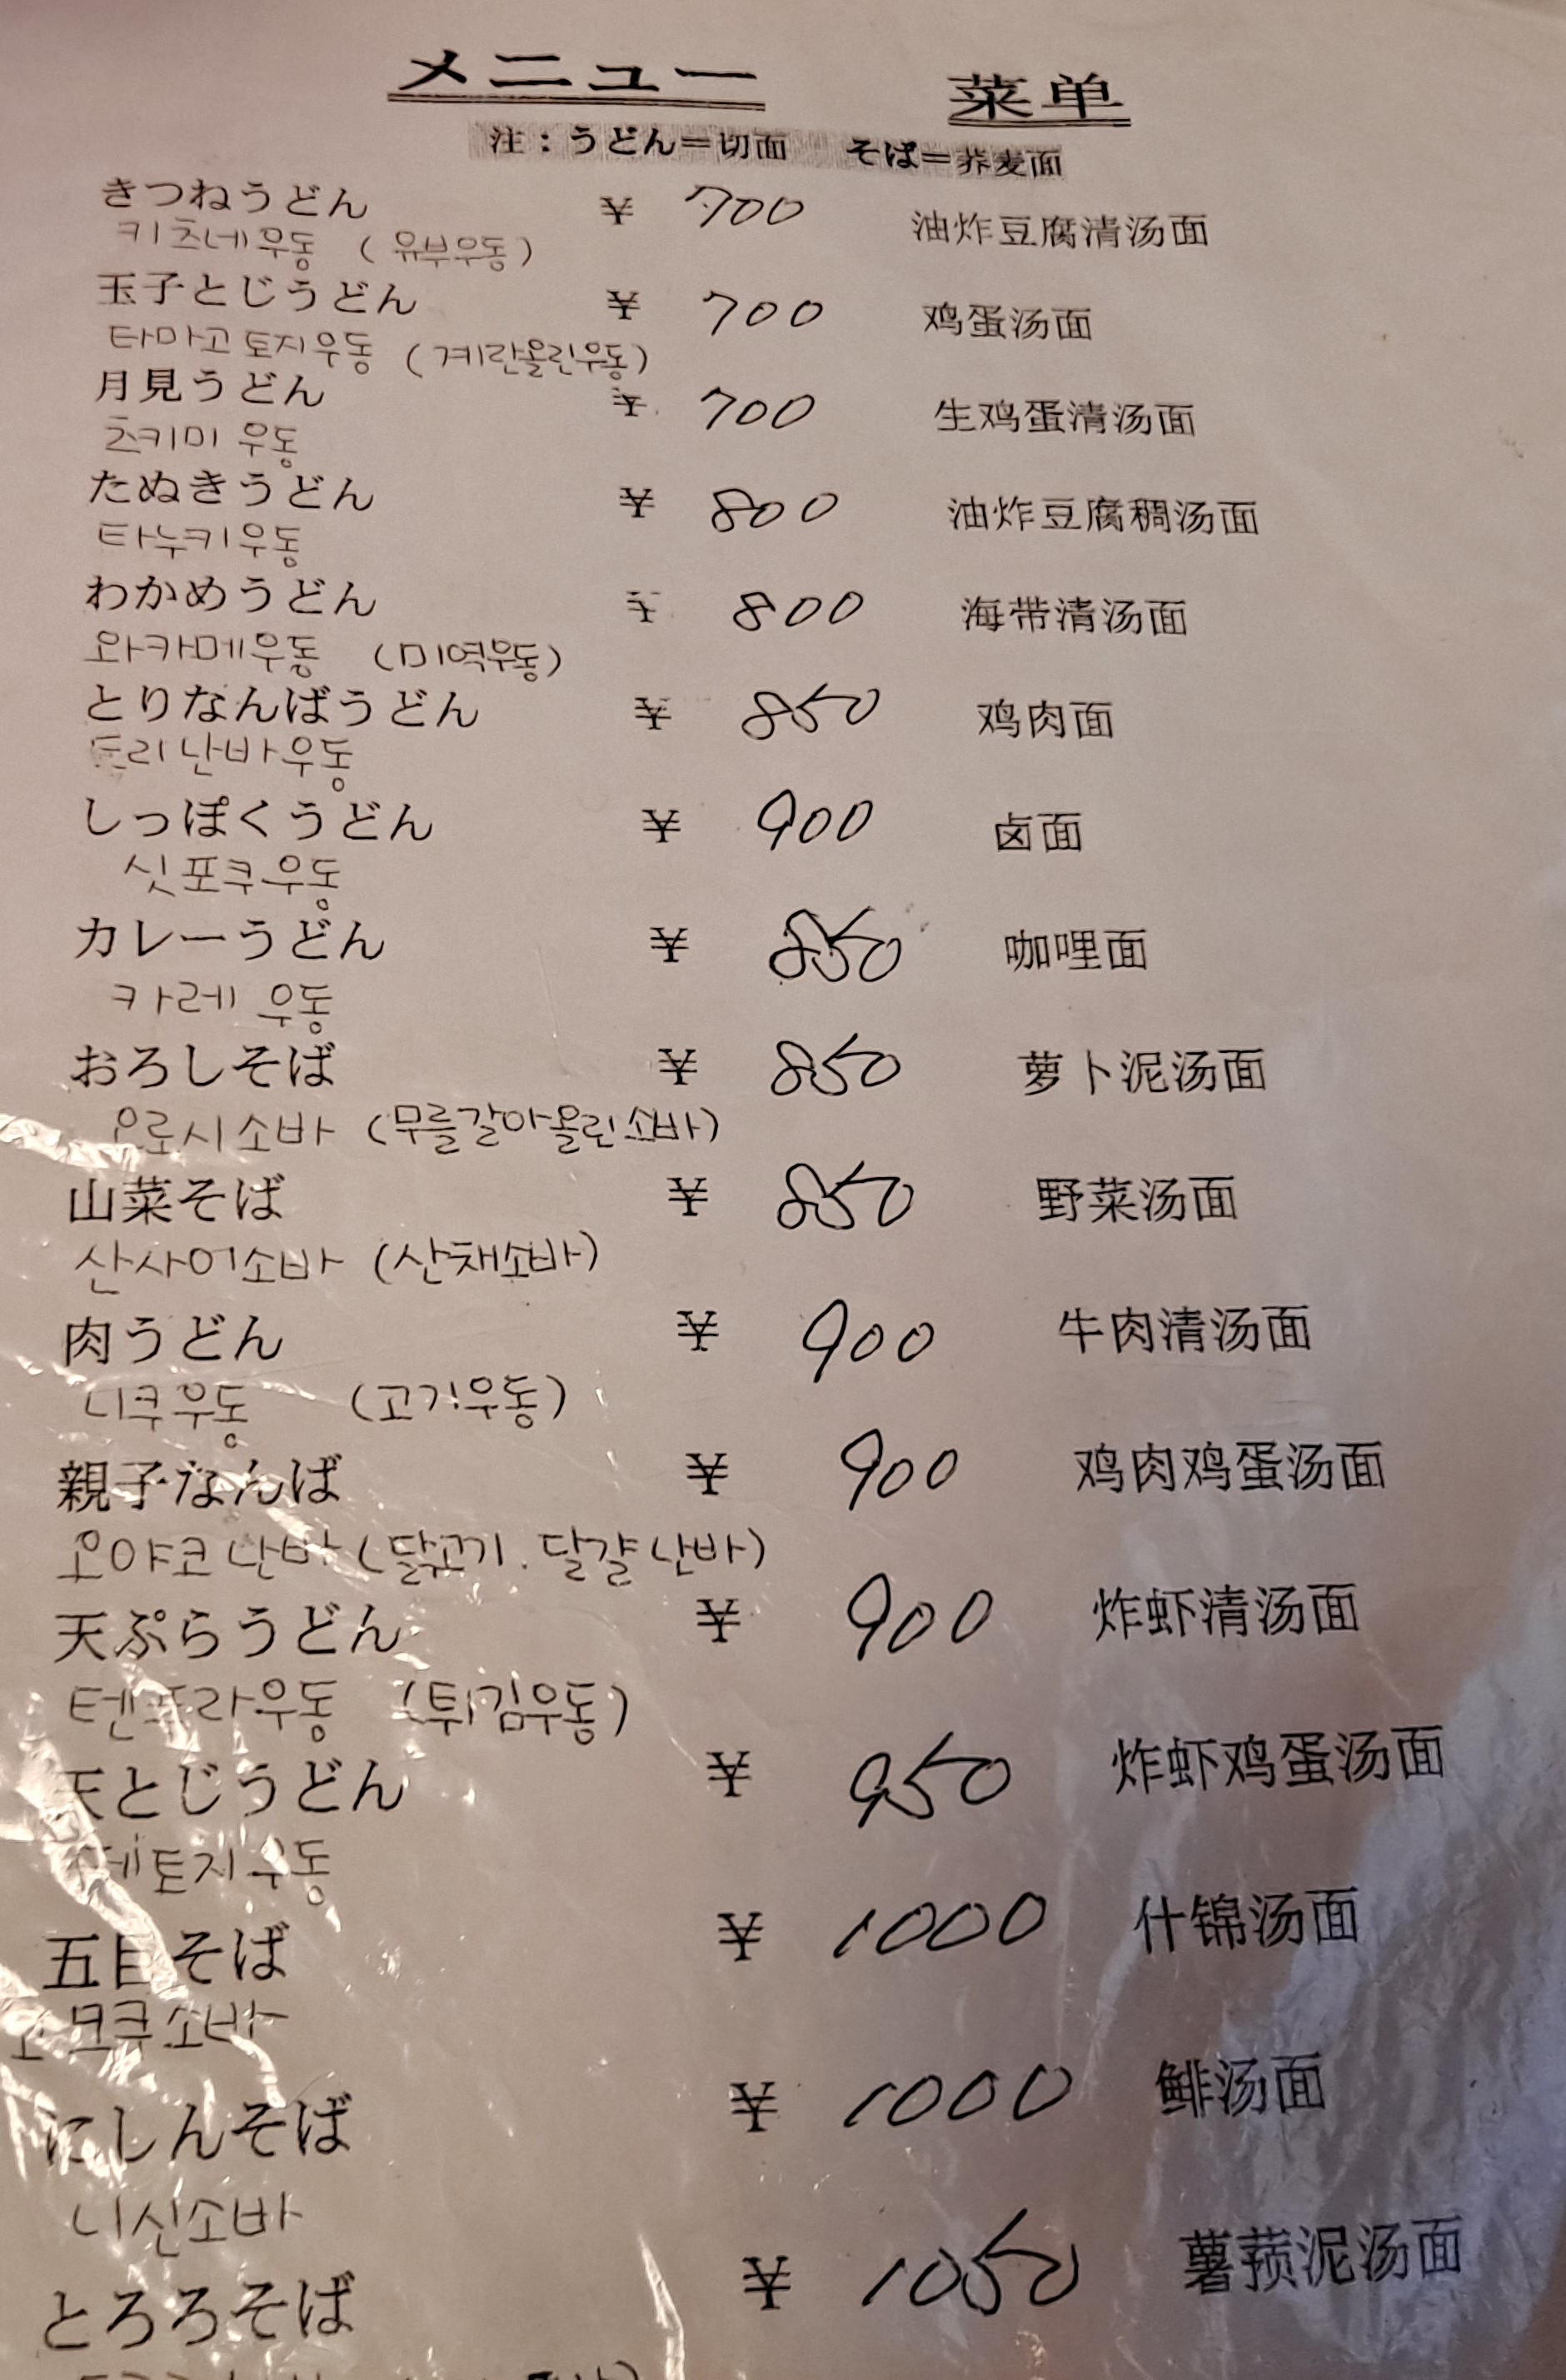 メニュー 菜单
注：うどん＝切面 そば＝荞麦面
きつねうどん ¥ 700 油炸豆腐清汤面
키츠네우동 (유부우동)
玉子とじうどん ¥ 700 鸡蛋汤面
타마고토지우동 (계란올린우동)
月見うどん ¥ 700 生鸡蛋清汤面
츠키미 우동
たぬきうどん ¥ 800 油炸豆腐稠汤面
타누키우동
わかめうどん ¥ 800 海带清汤面
와카메우동 (미역우동)
とりなんばうどん ¥ 850 鸡肉面
토리난바우동
しっぽくうどん ¥ 900 卤面
싯포쿠우동
カレーうどん ¥ 850 咖哩面
카레 우동
おろしそば ¥ 850 萝卜泥汤面
오로시소바 (무를갈아올린소바)
山菜そば ¥ 850 野菜汤面
산사이소바 (산채소바)
肉うどん ¥ 900 牛肉清汤面
니쿠우동 (고기우동)
親子なんば ¥ 900 鸡肉鸡蛋汤面
오야코난바 (닭고기.달걀난바)
天ぷらうどん ¥ 900 炸虾清汤面
텐프라우동 (튀김우동)
天とじうどん ¥ 950 炸虾鸡蛋汤面
토지우동
五目そば ¥ 1000 什锦汤面
모쿠소바
にしんそば ¥ 1000 鲱汤面
니신소바
とろろそば ¥ 1050 薯蓣泥汤面